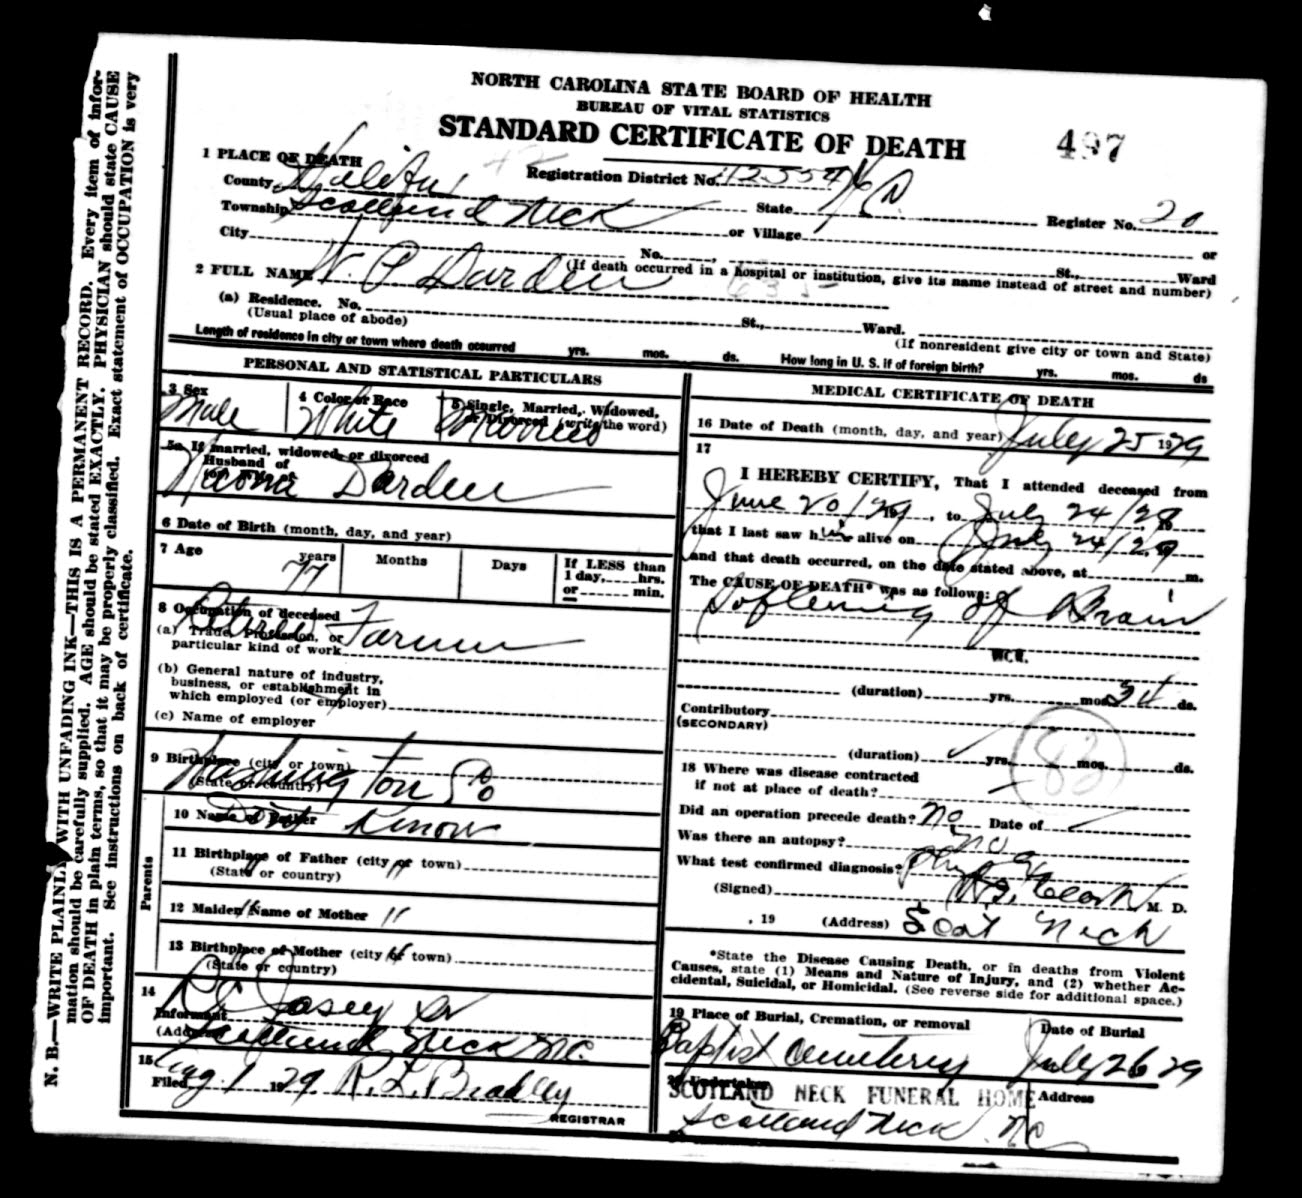 NORTH CAROLINA STATE BOARD OF HEALTH
BUREAU OF VITAL STATISTICS
STANDARD CERTIFICATE OF DEATH
497
1 PLACE OF DEATH
Registration District No.
County Halifax State N.C. Register No. 20
Township Scotland Neck or Village or
City No. St., Ward
(If death occurred in a hospital or institution, give its name instead of street and number)
2 FULL NAME W. P. Darden
(a) Residence. No. St., Ward.
(Usual place of abode) (If nonresident give city or town and State)
Length of residence in city or town where death occurred yrs. mos. ds. How long in U. S. if of foreign birth? yrs. mos. ds
PERSONAL AND STATISTICAL PARTICULARS
3 Sex 4 Color or Race 5 Single, Married, Widowed,
or Divorced (write the word)
Male White Married
5a If married, widowed, or divorced
Husband of
Darden
6 Date of Birth (month, day, and year)
7 Age 77 years Months Days If LESS than
1 day, hrs.
or min.
8 Occupation of deceased
(a) Trade, Profession, or
particular kind of work
Retired Farmer
(b) General nature of industry,
business, or establishment in
which employed (or employer)
(c) Name of employer
9 Birthplace (city or town)
(State or country)
Washington Co
10 Name of Father Dont Know
11 Birthplace of Father (city or town) "
(State or country)
12 Maiden Name of Mother "
13 Birthplace of Mother (city or town) "
(State or country)
Parents
14
Informant R C Josey Sr
(Address) Scotland Neck N.C.
15
Filed Aug 1 1929 R. L. Bradley
REGISTRAR
MEDICAL CERTIFICATE OF DEATH
16 Date of Death (month, day, and year) July 25 1929
17
I HEREBY CERTIFY, That I attended deceased from
June 20/29 19 , to July 24/29 19
that I last saw him alive on July 24/29
and that death occurred, on the date stated above, at m.
The CAUSE OF DEATH* was as follows:
Softening of Brain
(duration) yrs. mos. ds.
Contributory
(SECONDARY)
(duration) yrs. mos. ds.
83
18 Where was disease contracted
if not at place of death?
Did an operation precede death? No Date of
Was there an autopsy? No
What test confirmed diagnosis?
(Signed) M. D.
, 19 (Address) Scot Neck
*State the Disease Causing Death, or in deaths from Violent
Causes, state (1) Means and Nature of Injury, and (2) whether Ac-
cidental, Suicidal, or Homicidal. (See reverse side for additional space.)
19 Place of Burial, Cremation, or removal Date of Burial
Baptist Cemetery July 26 29
20 Undertaker Address
SCOTLAND NECK FUNERAL HOME
Scotland Neck N.C.
N. B.—WRITE PLAINLY WITH UNFADING INK—THIS IS A PERMANENT RECORD. Every item of infor-
mation should be carefully supplied. AGE should be stated EXACTLY. PHYSICIAN should state CAUSE
OF DEATH in plain terms, so that it may be properly classified. Exact statement of OCCUPATION is very
important. See instructions on back of certificate.